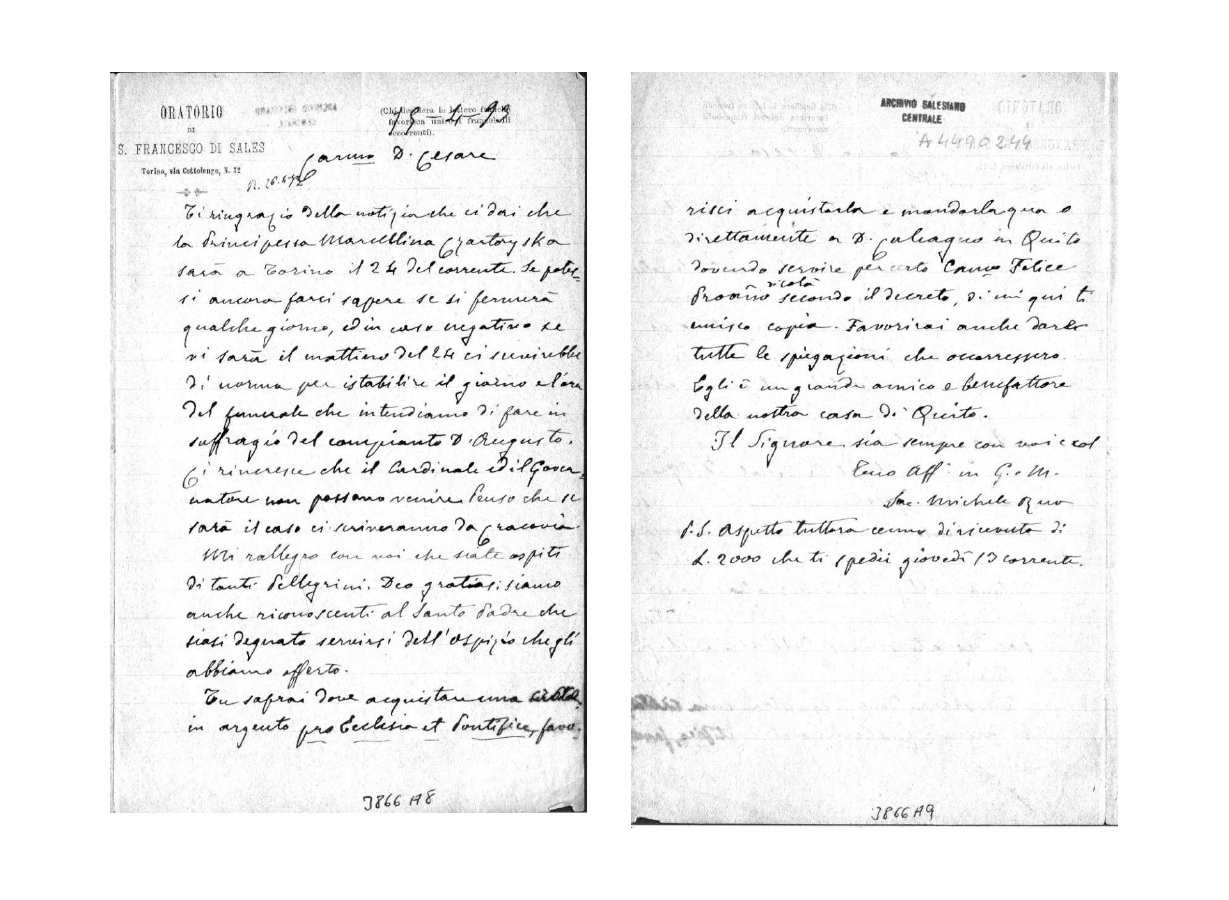 ORATORIO
DI
S. FRANCESCO DI SALES
Torino, via Cottolengo, N. 32
(Chi desidera le lettere
favorisca unire i francobolli
occorrenti).
18-4-93
Car.mo D. Cesare
R. 26.4.93
Ti ringrazio della notizia che ci dai che
la Principessa Marcellina Czartoryska
sarà a Torino il 24 del corrente. Se potes=
si ancora farci sapere se si fermerà
qualche giorno, ed in caso negativo se
vi sarà il mattino del 24 ci servirebbe
di norma per istabilire il giorno e l'ora
del funerale che intendiamo di fare in
suffragio del compianto D. Augusto.
Ci rincresce che il Cardinale ed il Gover=
natore non possano venire. Penso che se
sarà il caso ci scriveranno da Cracovia.
Mi rallegro con voi che siate ospiti
di tanti Pellegrini. Deo gratias. siamo
anche riconoscenti al Santo Padre che
siasi degnato servirsi dell'Ospizio che gli
abbiamo offerto.
Tu saprai dove acquistare una
in argento pro Ecclesia et Pontifice, favo=
J866 A8
ARCHIVIO SALESIANO
CENTRALE
A4490244
risci acquistarla e mandarla qua o
direttamente a D. Calcagno in Quito
dovendo servire per certo Can.co Felice
secondo il decreto, di cui qui ti
unisco copia. Favorirai anche dare
tutte le spiegazioni che occorressero.
Egli è un grande amico e benefattore
della nostra casa di Quito.
Il Signore sia sempre con voi e col
Tuo Aff. in G. e M.
Sac. Michele Rua
P.S. Aspetto tuttora cenno di ricevuta di
L. 2000 che ti spedii giovedì 13 corrente.
J866 A9